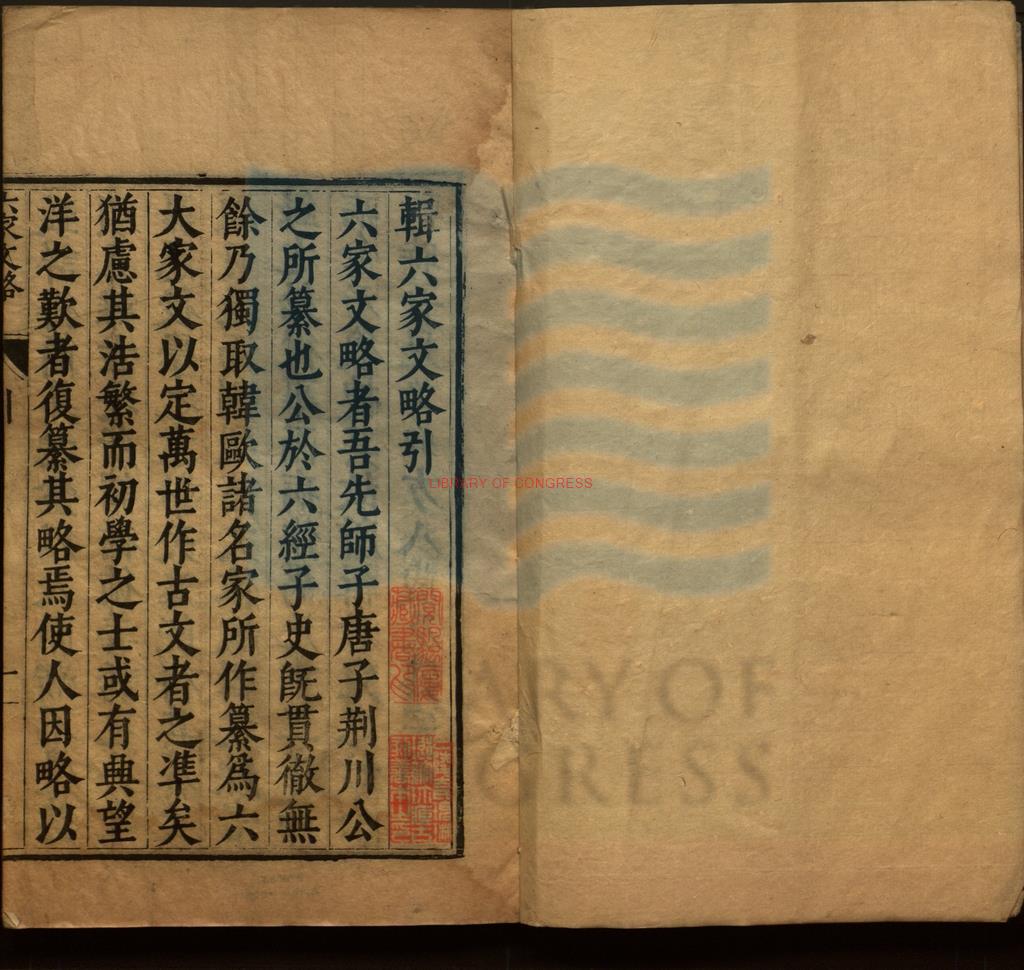 輯六家文略引
六家文略者吾先師子唐子荆川公
之所纂也公於六經子史旣貫徹無
餘乃獨取韓歐諸名家所作纂爲六
大家文以定萬世作古文者之準矣
猶慮其浩繁而初學之士或有典望
洋之歎者復纂其略焉使人因略以
六家文略
引
一
LIBRARY OF CONGRESS
LIBRARY OF
CONGRESS